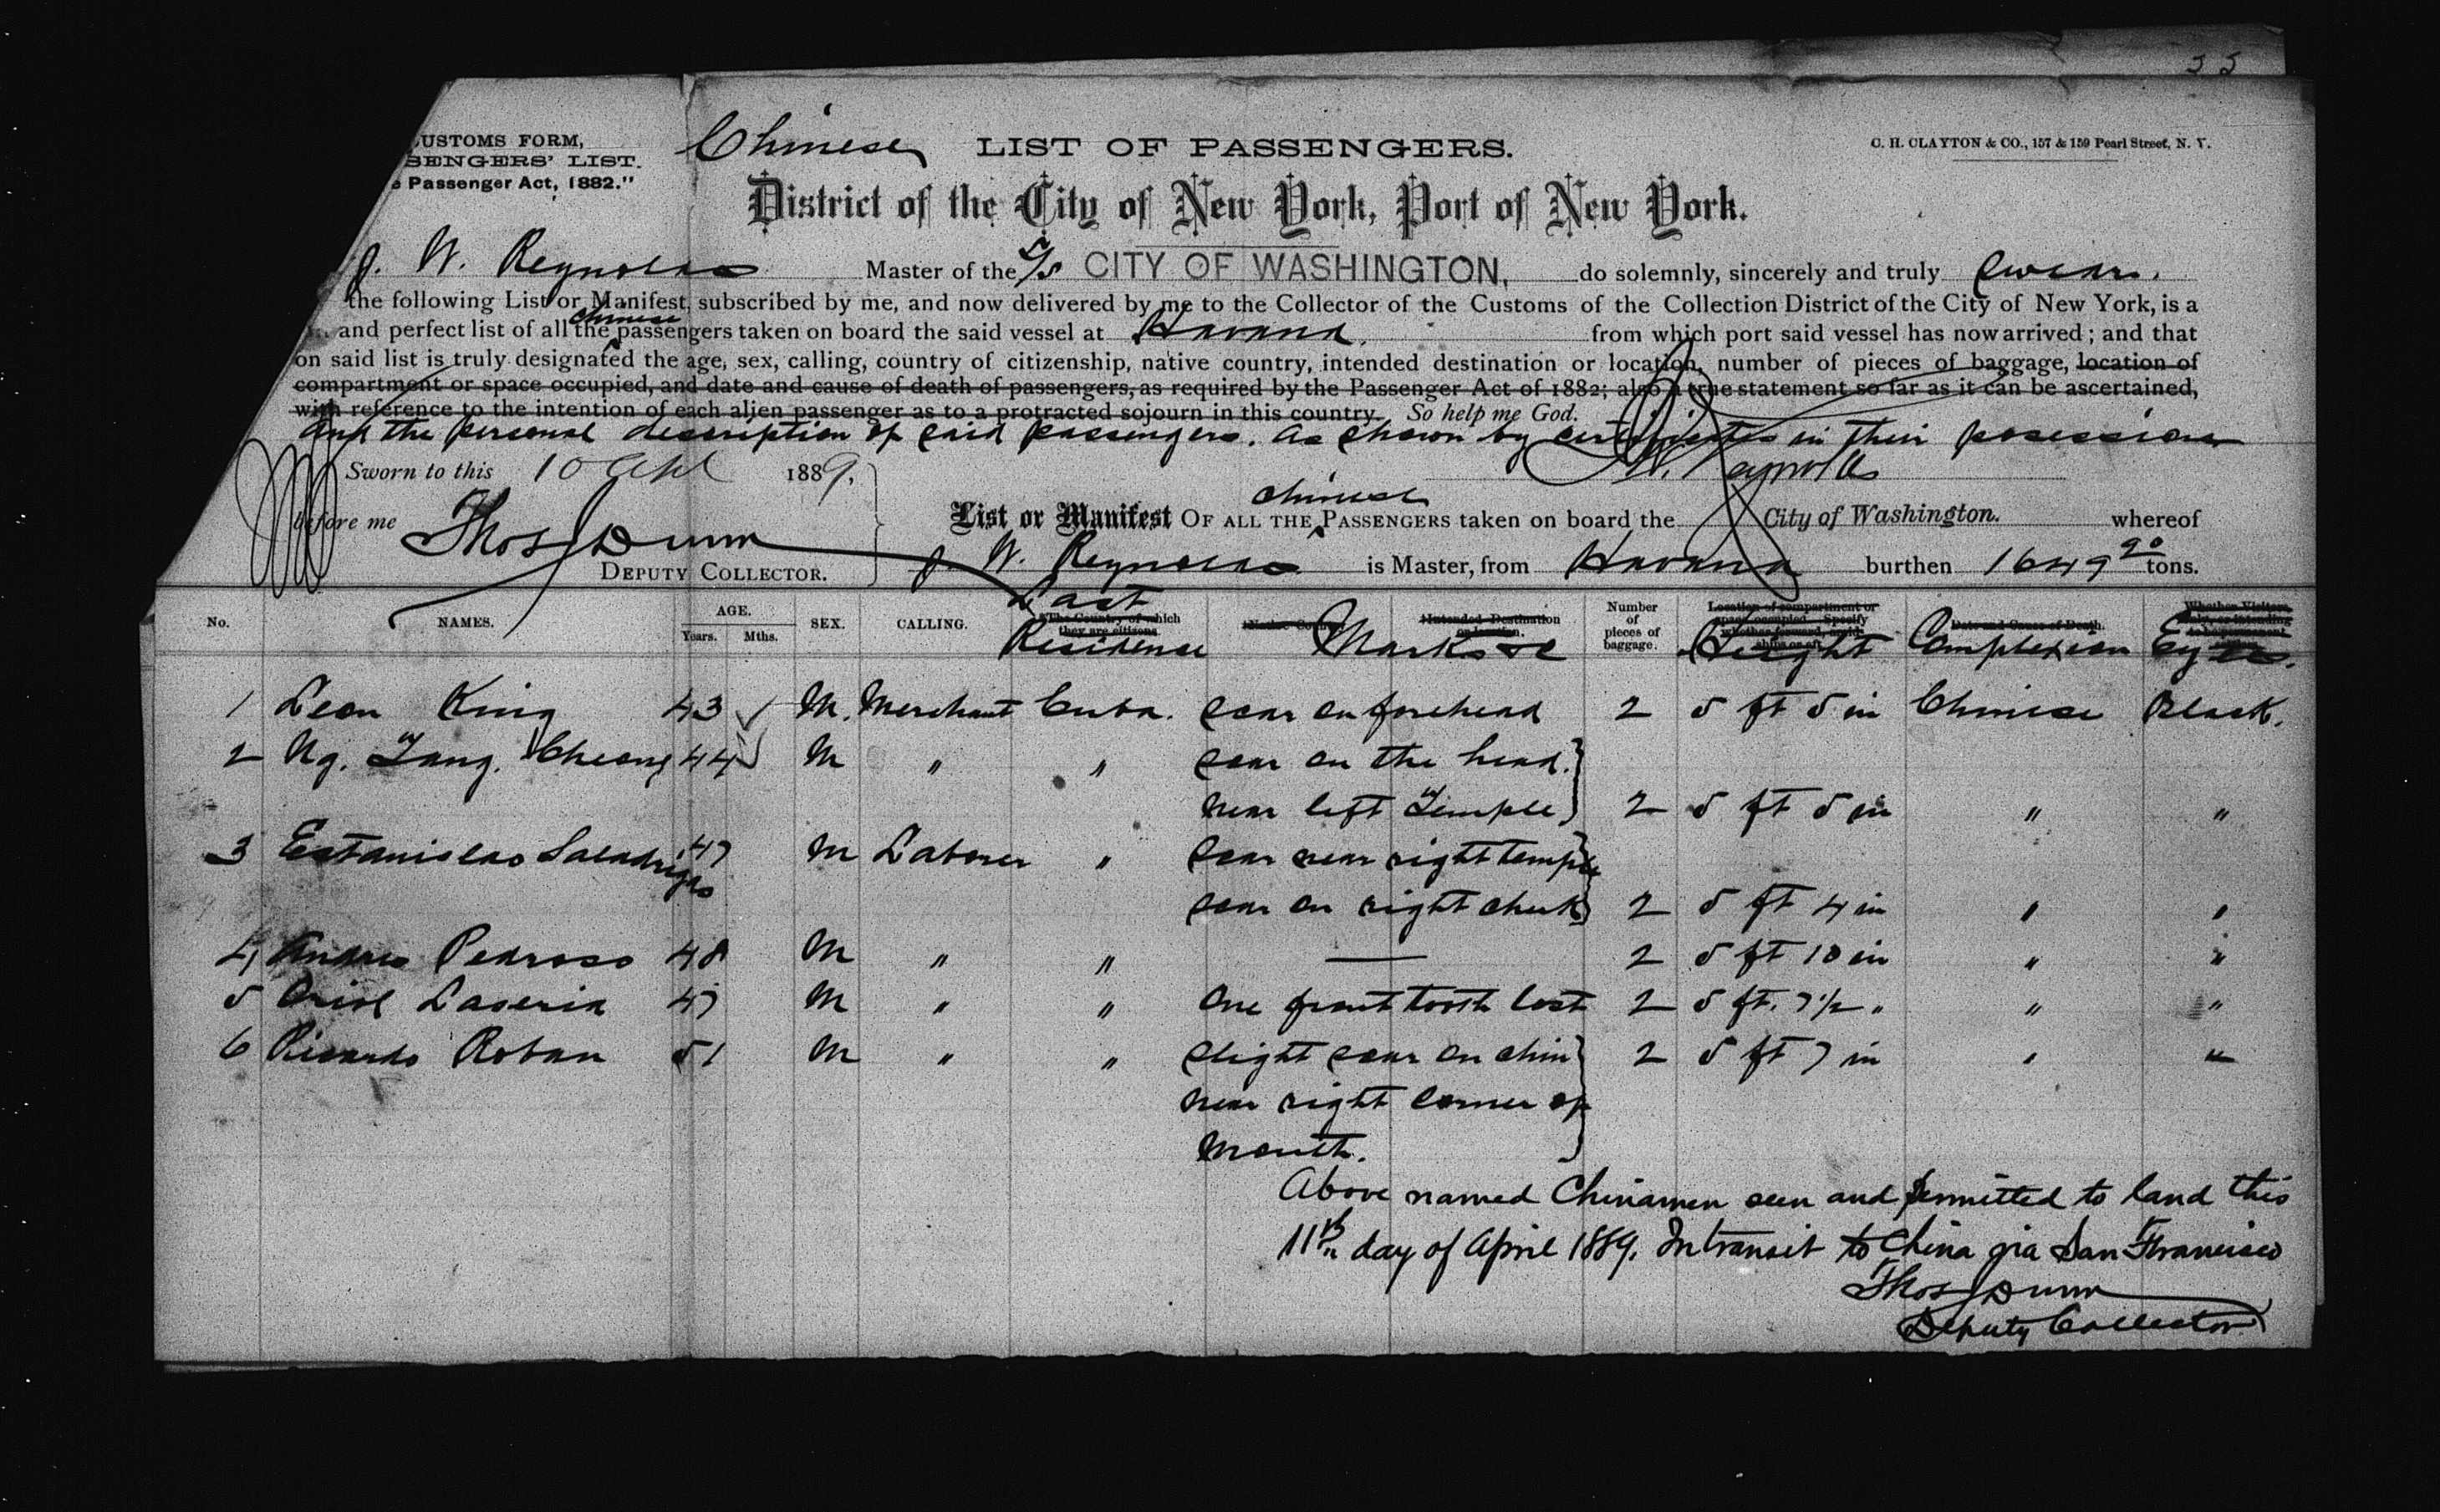 55
CUSTOMS FORM,
SENGERS' LIST.
Passenger Act, 1882."
Chinese LIST OF PASSENGERS.
C. H. CLAYTON & CO., 157 & 159 Pearl Street, N. Y.
District of the City of New York, Port of New York.
J. W. Reynolds Master of the S/S CITY OF WASHINGTON, do solemnly, sincerely and truly swear,
the following List or Manifest, subscribed by me, and now delivered by me to the Collector of the Customs of the Collection District of the City of New York, is a
and perfect list of all the Chinese passengers taken on board the said vessel at Havana. from which port said vessel has now arrived; and that
on said list is truly designated the age, sex, calling, country of citizenship, native country, intended destination or location, number of pieces of baggage, location of
compartment or space occupied, and date and cause of death of passengers, as required by the Passenger Act of 1882; also a true statement so far as it can be ascertained,
with reference to the intention of each alien passenger as to a protracted sojourn in this country. So help me God.
and the personal description of said passengers. as shown by certificates in their possession
Sworn to this 10 Apl 1889, J. W. Reynolds
before me Thos J Dunn
DEPUTY COLLECTOR.
List or Manifest OF ALL THE Chinese PASSENGERS taken on board the City of Washington. whereof
J. W. Reynolds is Master, from Havana burthen 1649 90 tons.
No. NAMES. AGE. Years. Mths. SEX. CALLING. The Country of which they are citizens Last Residence Native Country Marks &c Intended Destination or location. Number of pieces of baggage. Location of compartment or space occupied. Specify Height Date and Cause of Death. Complexion Eyes.
1 Leon King 43 M. Merchant Cuba. scar on forehead 2 5 ft 5 in Chinese Black.
2 Ng. Tang. Cheong 44 M " " scar on the head.
near left Temple 2 5 ft 5 in " "
3 Estanislao Saladrigas 47 M Laborer " scar near right temple
scar on right cheek 2 5 ft 4 in " "
4 Andres Pedroso 48 M " " — 2 5 ft 10 in " "
5 Oriol Laseria 47 M " " One front tooth lost 2 5 ft. 7 1/2 " " "
6 Ricardo Roban 51 M " " slight scar on chin 2 5 ft 7 in " "
near right corner of
mouth.
Above named Chinamen seen and permitted to land this
11th day of April 1889. In transit to China via San Francisco
Thos J Dunn
Deputy Collector